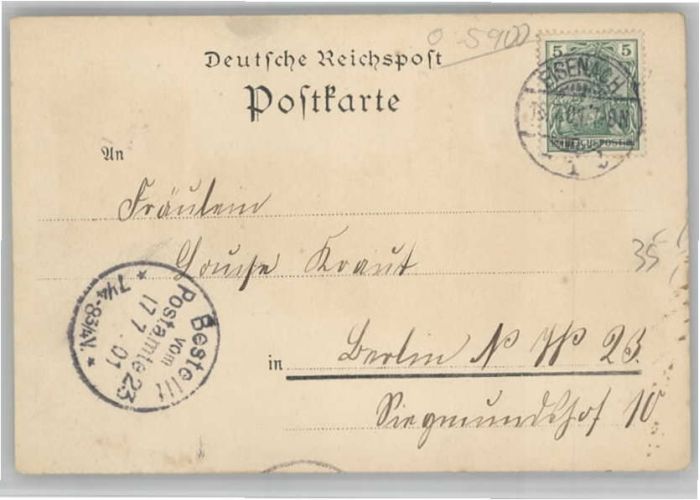 o 5900
Deutsche Reichspost
Postkarte
5 5
EISENACH
REICHSPOST
An
Fräulein
Louise Kraut
35
in Berlin N W 23.
Siegmundshof 10
Bestellt
vom
Postamte 23
17 7. 01
* 7¼-8¾N. *